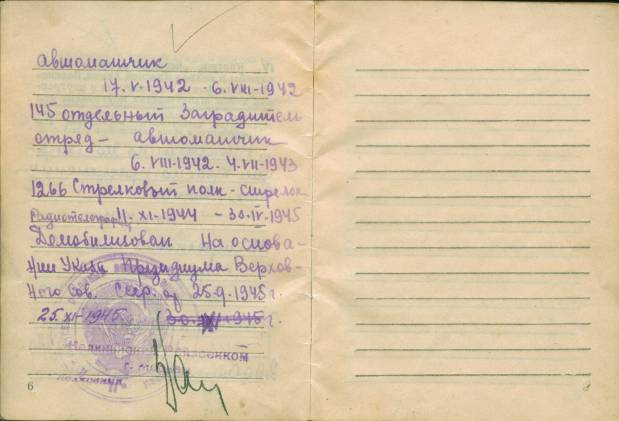 автоматчик
17.V-1942 - 6.VIII-1942
145 отдельный Заградител
отряд - автоматчик
6.VIII-1942. 4.VII-1943
1266 Стрелковый полк - стрелок
Радиотелеграф 11.XI-1944 - 30.IV-1945
Демобилизован На основа-
нии Указа Президиума Верхов-
ного Сов. Сср. от 25.9.1945г.
25.XI-1945. 30.XI-1945г.
6